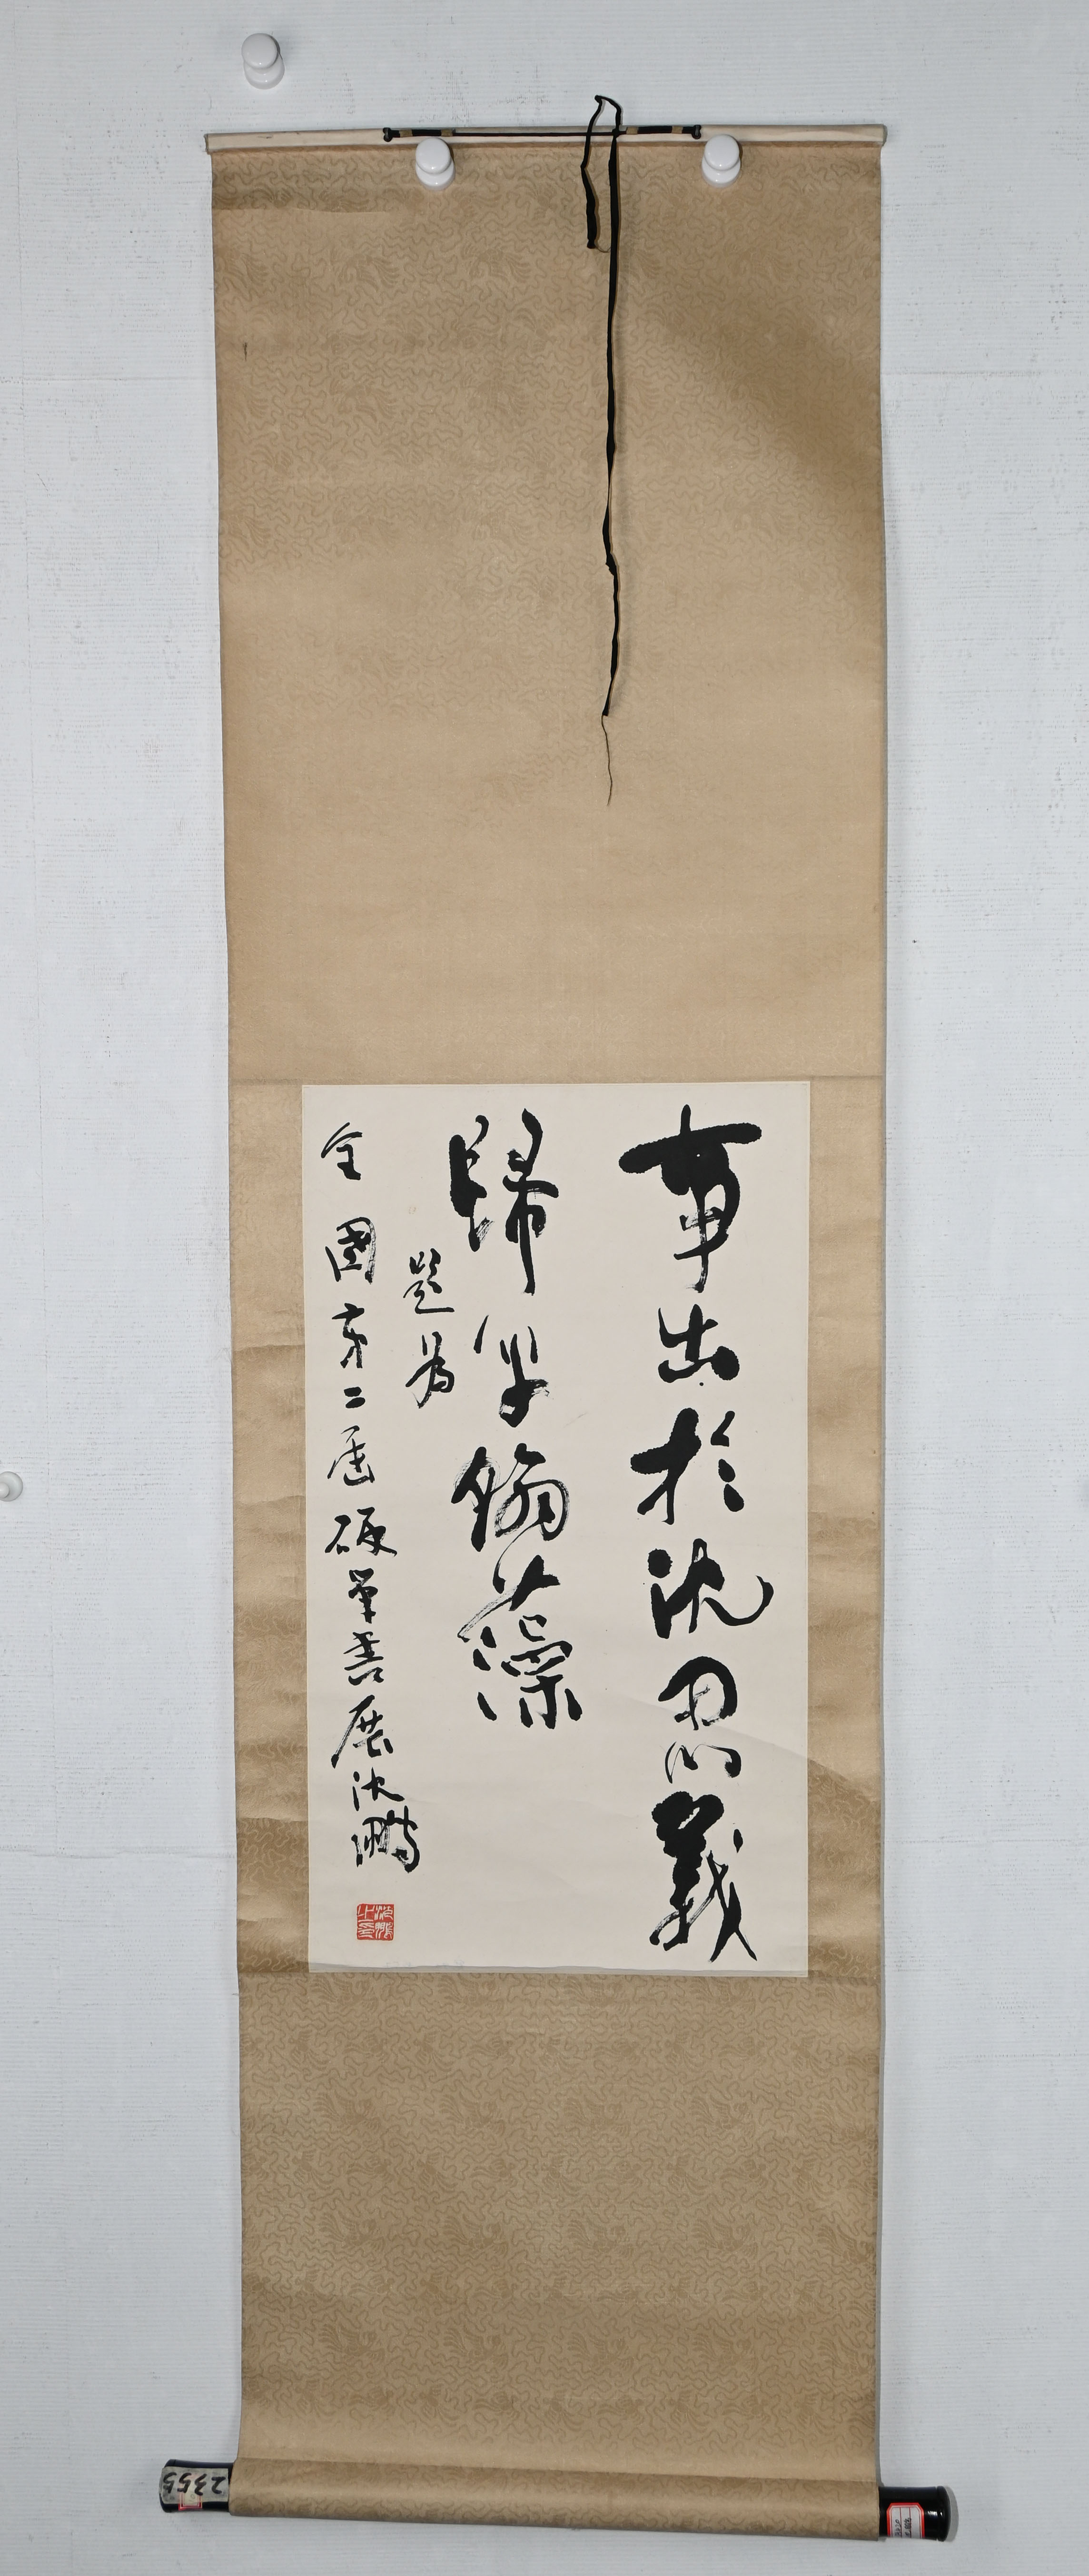 事出於沈思義
歸乎翰藻
題為
全國第二屆硬筆書展沈鵬
沈鵬之印
2355